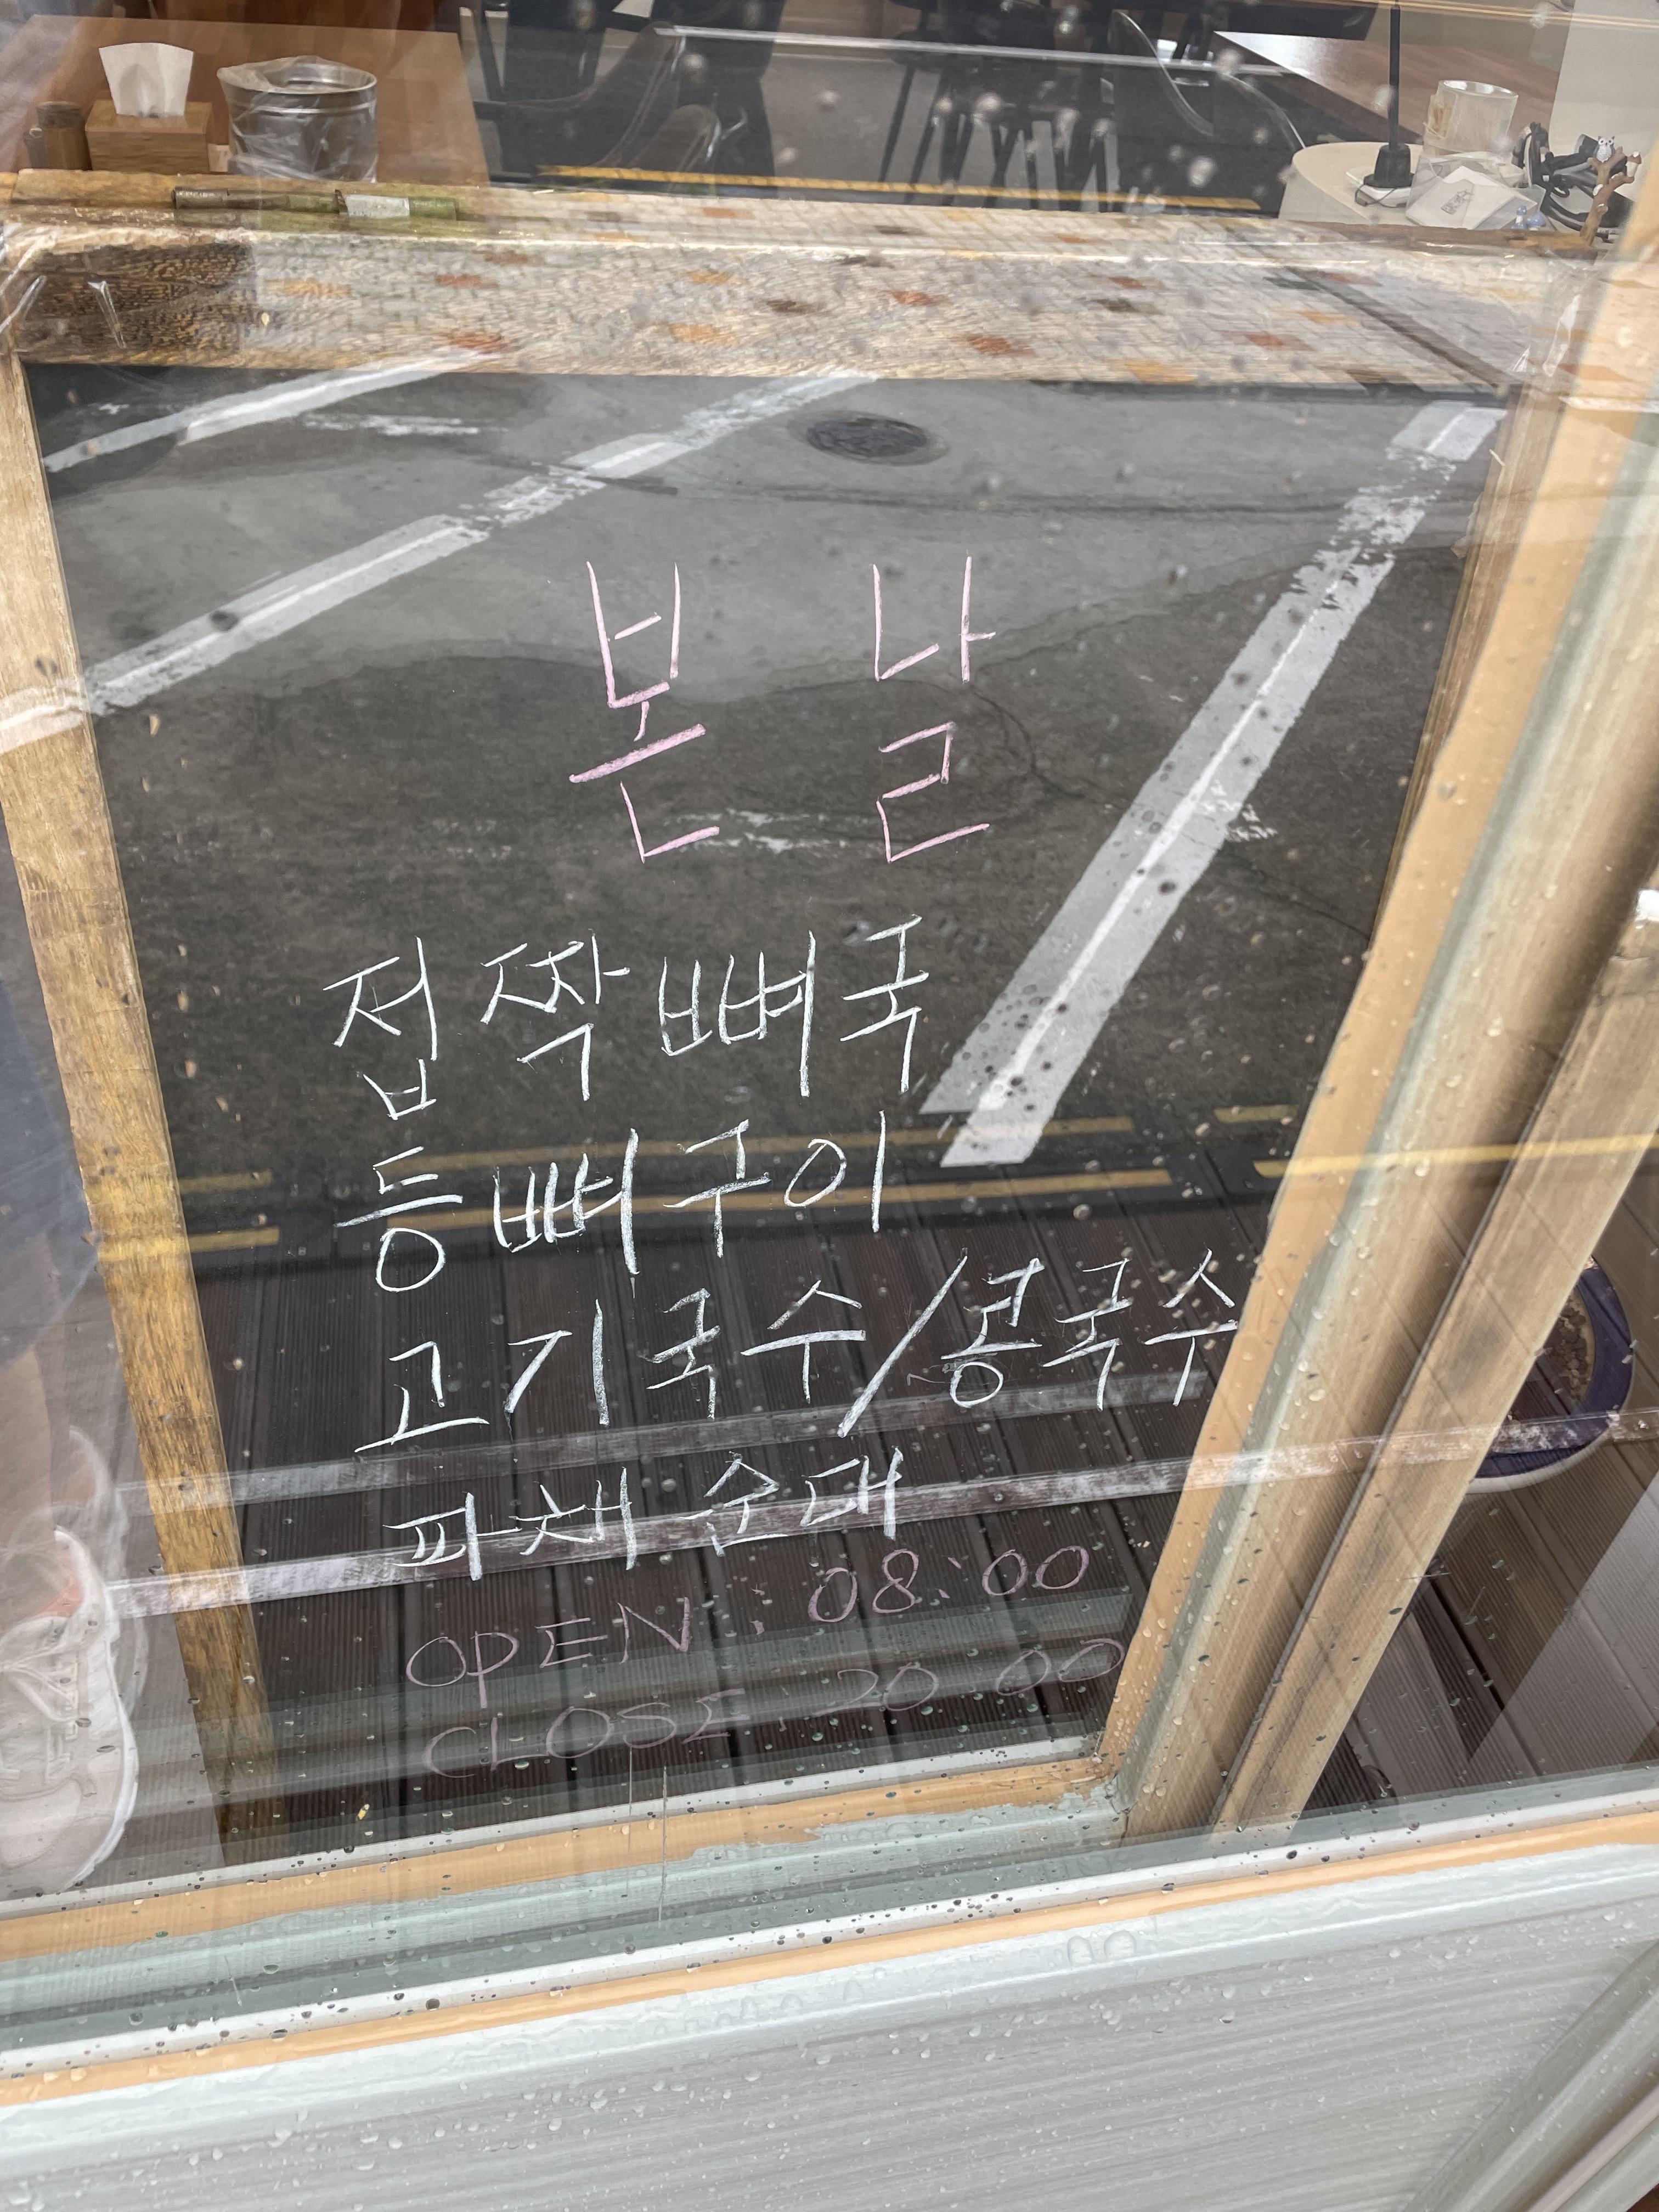 본 날
접짝뼈국
등뼈구이
고기국수/콩국수
파채순대
OPEN : 08:00
CLOSE : 20 00